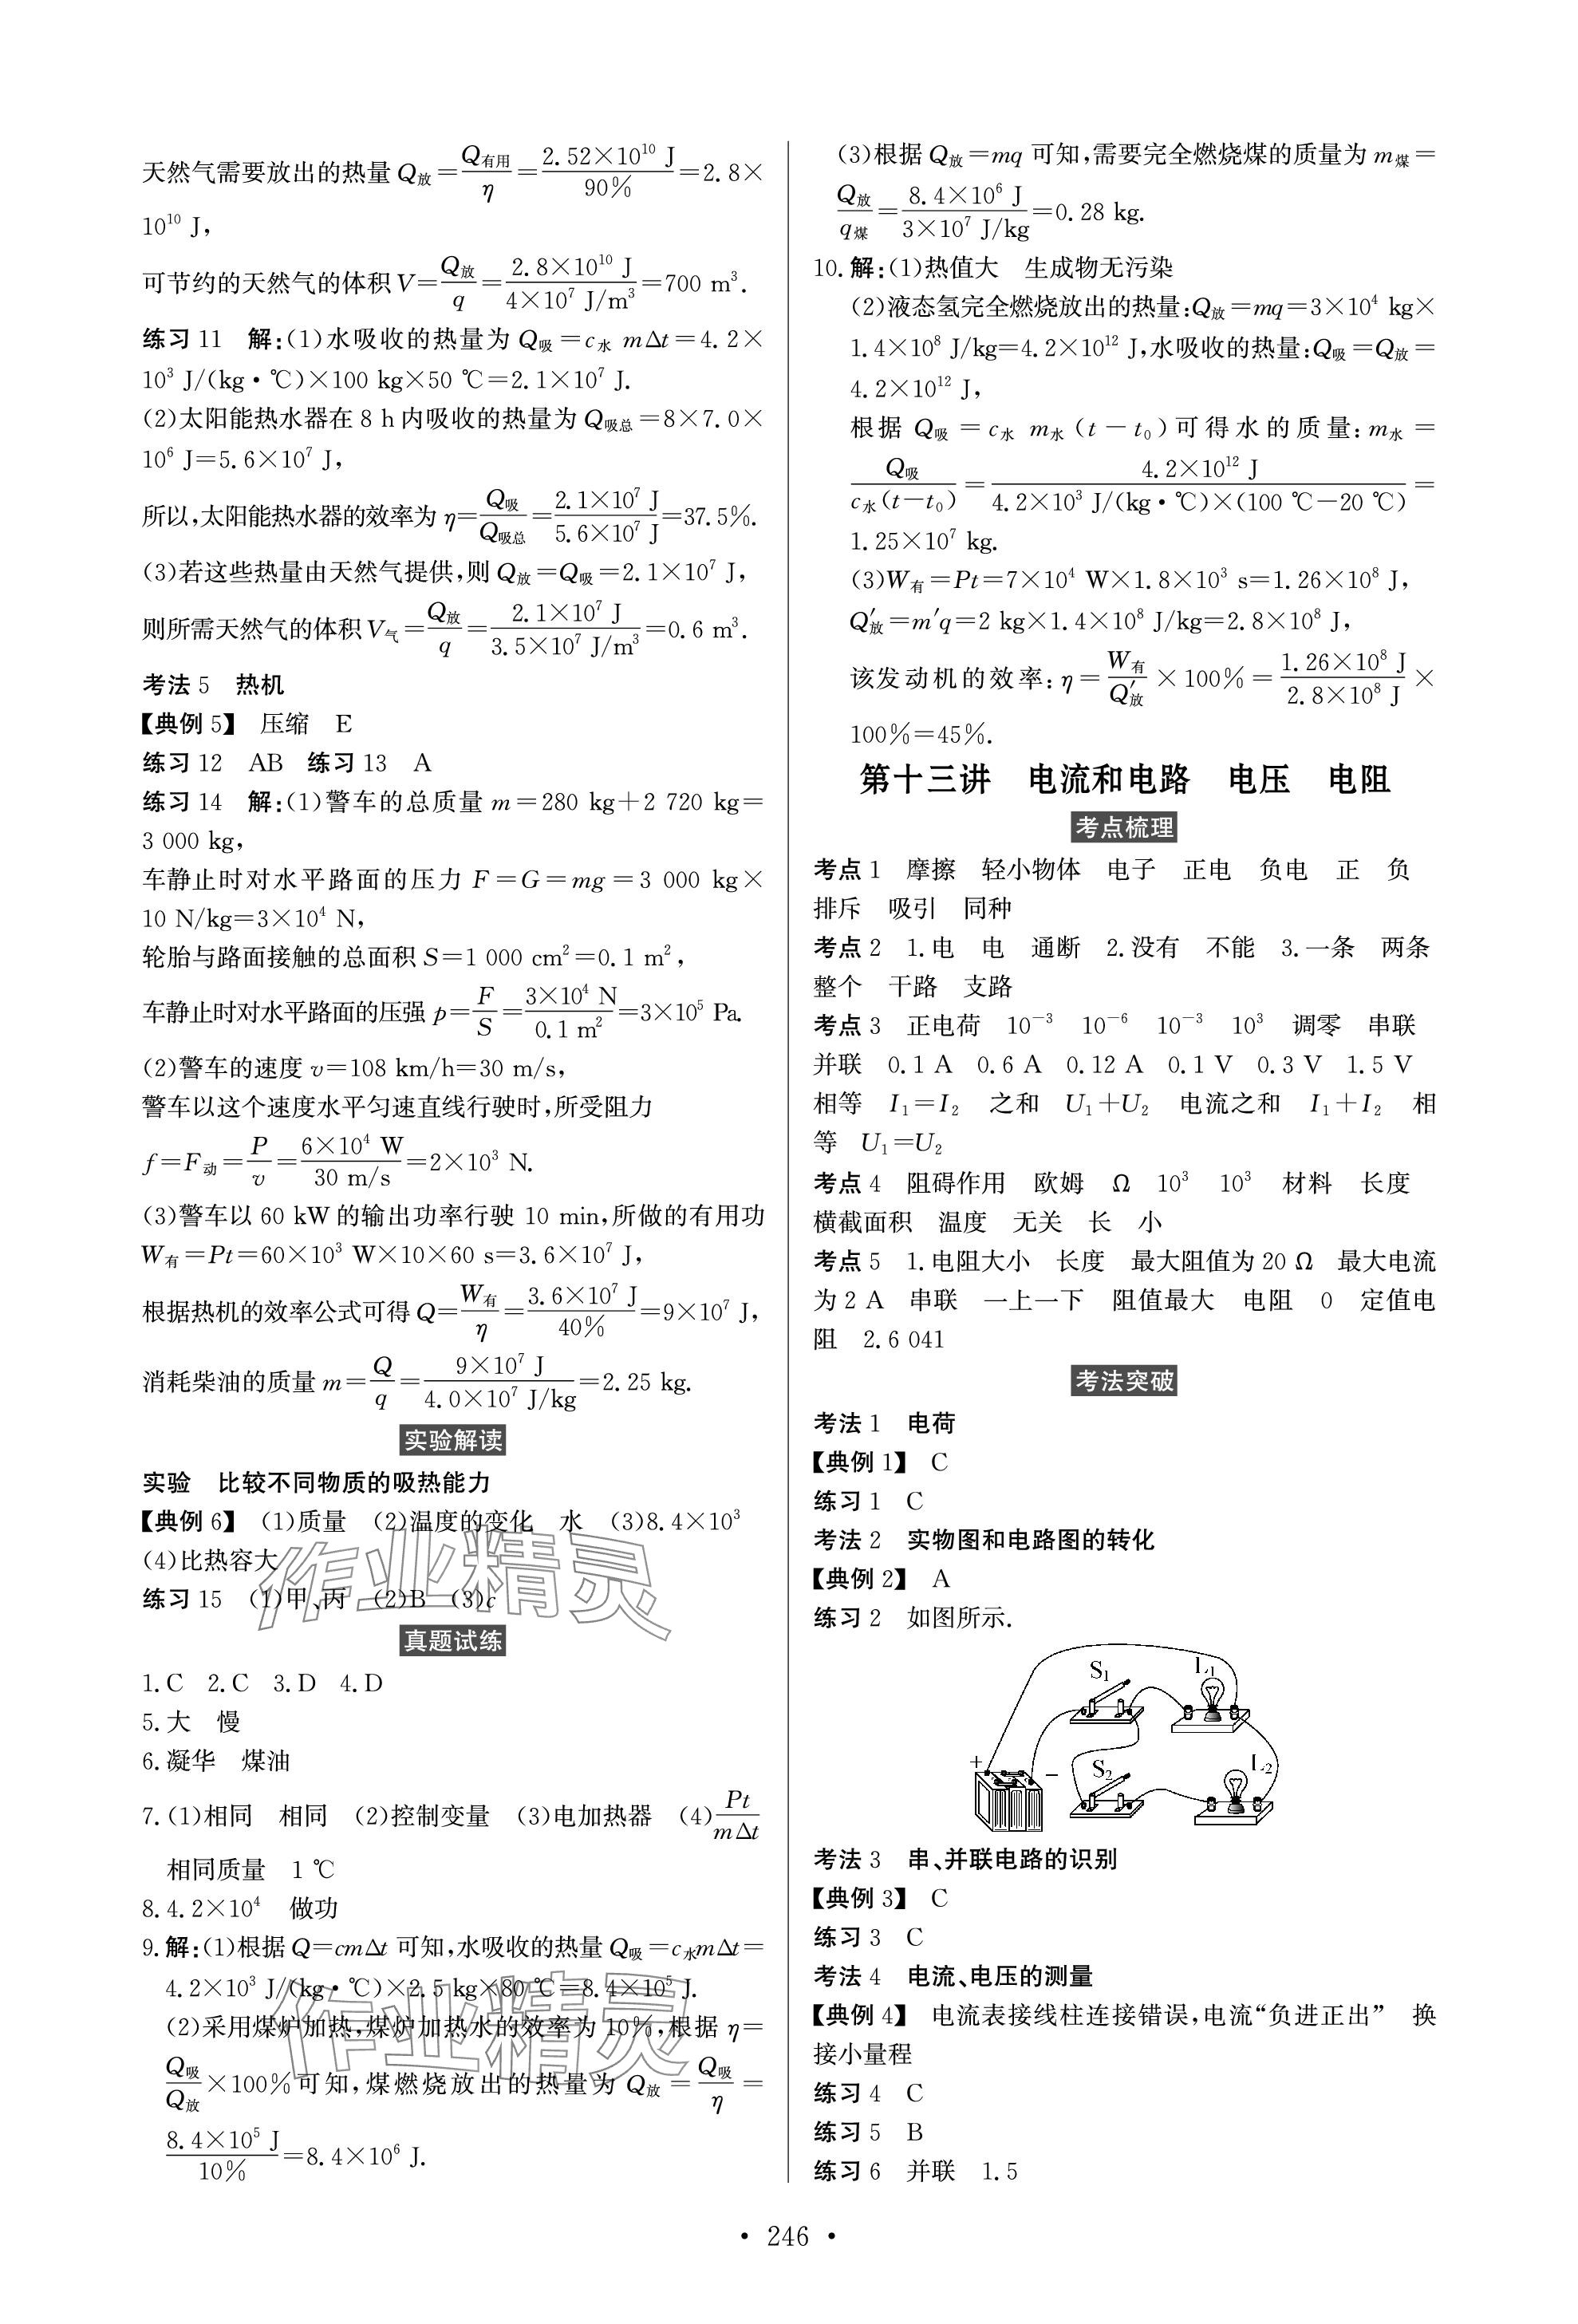 天然气需要放出的热量 Q放=Q有用/η=2.52×10¹⁰ J/90%=2.8×
10¹⁰ J,
可节约的天然气的体积 V=Q放/q=2.8×10¹⁰ J/4×10⁷ J/m³=700 m³.
练习 11 解:(1)水吸收的热量为 Q吸=c水 mΔt=4.2×
10³ J/(kg·℃)×100 kg×50 ℃=2.1×10⁷ J.
(2)太阳能热水器在 8 h 内吸收的热量为 Q吸总=8×7.0×
10⁶ J=5.6×10⁷ J,
所以,太阳能热水器的效率为 η=Q吸/Q吸总=2.1×10⁷ J/5.6×10⁷ J=37.5%.
(3)若这些热量由天然气提供,则 Q放=Q吸=2.1×10⁷ J,
则所需天然气的体积 V气=Q放/q=2.1×10⁷ J/3.5×10⁷ J/m³=0.6 m³.
考法 5 热机
【典例 5】 压缩 E
练习 12 AB 练习 13 A
练习 14 解:(1)警车的总质量 m=280 kg+2 720 kg=
3 000 kg,
车静止时对水平路面的压力 F=G=mg=3 000 kg×
10 N/kg=3×10⁴ N,
轮胎与路面接触的总面积 S=1 000 cm²=0.1 m²,
车静止时对水平路面的压强 p=F/S=3×10⁴ N/0.1 m²=3×10⁵ Pa.
(2)警车的速度 v=108 km/h=30 m/s,
警车以这个速度水平匀速直线行驶时,所受阻力
f=F动=P/v=6×10⁴ W/30 m/s=2×10³ N.
(3)警车以 60 kW 的输出功率行驶 10 min,所做的有用功
W有=Pt=60×10³ W×10×60 s=3.6×10⁷ J,
根据热机的效率公式可得 Q=W有/η=3.6×10⁷ J/40%=9×10⁷ J,
消耗柴油的质量 m=Q/q=9×10⁷ J/4.0×10⁷ J/kg=2.25 kg.
实验解读
实验 比较不同物质的吸热能力
【典例 6】 (1)质量 (2)温度的变化 水 (3)8.4×10³
(4)比热容大
练习 15 (1)甲、丙 (2)B (3)c
作业精灵
真题试练
1.C 2.C 3.D 4.D
5.大 慢
6.凝华 煤油
7.(1)相同 相同 (2)控制变量 (3)电加热器 (4)Pt/mΔt
相同质量 1 ℃
8.4.2×10⁴ 做功
9.解:(1)根据 Q=cmΔt 可知,水吸收的热量 Q吸=c水mΔt=
4.2×10³ J/(kg·℃)×2.5 kg×80 ℃=8.4×10⁵ J.
(2)采用煤炉加热,煤炉加热水的效率为 10%,根据 η=
Q吸/Q放×100%可知,煤燃烧放出的热量为 Q放=Q吸/η=
8.4×10⁵ J/10%=8.4×10⁶ J.
作业精灵
(3)根据 Q放=mq 可知,需要完全燃烧煤的质量为 m煤=
Q放/q煤=8.4×10⁶ J/3×10⁷ J/kg=0.28 kg.
10.解:(1)热值大 生成物无污染
(2)液态氢完全燃烧放出的热量:Q放=mq=3×10⁴ kg×
1.4×10⁸ J/kg=4.2×10¹² J,水吸收的热量:Q吸=Q放=
4.2×10¹² J,
根据 Q吸=c水 m水(t-t₀)可得水的质量:m水=
Q吸/c水(t-t₀)=4.2×10¹² J/4.2×10³ J/(kg·℃)×(100 ℃-20 ℃)=
1.25×10⁷ kg.
(3)W有=Pt=7×10⁴ W×1.8×10³ s=1.26×10⁸ J,
Q′放=m′q=2 kg×1.4×10⁸ J/kg=2.8×10⁸ J,
该发动机的效率:η=W有/Q′放×100%=1.26×10⁸ J/2.8×10⁸ J×
100%=45%.
第十三讲 电流和电路 电压 电阻
考点梳理
考点 1 摩擦 轻小物体 电子 正电 负电 正 负
排斥 吸引 同种
考点 2 1.电 电 通断 2.没有 不能 3.一条 两条
整个 干路 支路
考点 3 正电荷 10⁻³ 10⁻⁶ 10⁻³ 10³ 调零 串联
并联 0.1 A 0.6 A 0.12 A 0.1 V 0.3 V 1.5 V
相等 I₁=I₂ 之和 U₁+U₂ 电流之和 I₁+I₂ 相
等 U₁=U₂
考点 4 阻碍作用 欧姆 Ω 10³ 10³ 材料 长度
横截面积 温度 无关 长 小
考点 5 1.电阻大小 长度 最大阻值为 20 Ω 最大电流
为 2 A 串联 一上一下 阻值最大 电阻 0 定值电
阻 2.6 041
考法突破
考法 1 电荷
【典例 1】 C
练习 1 C
考法 2 实物图和电路图的转化
【典例 2】 A
练习 2 如图所示.
S₁ L₁
+ - S₂ L₂
考法 3 串、并联电路的识别
【典例 3】 C
练习 3 C
考法 4 电流、电压的测量
【典例 4】 电流表接线柱连接错误,电流“负进正出” 换
接小量程
练习 4 C
练习 5 B
练习 6 并联 1.5
· 246 ·